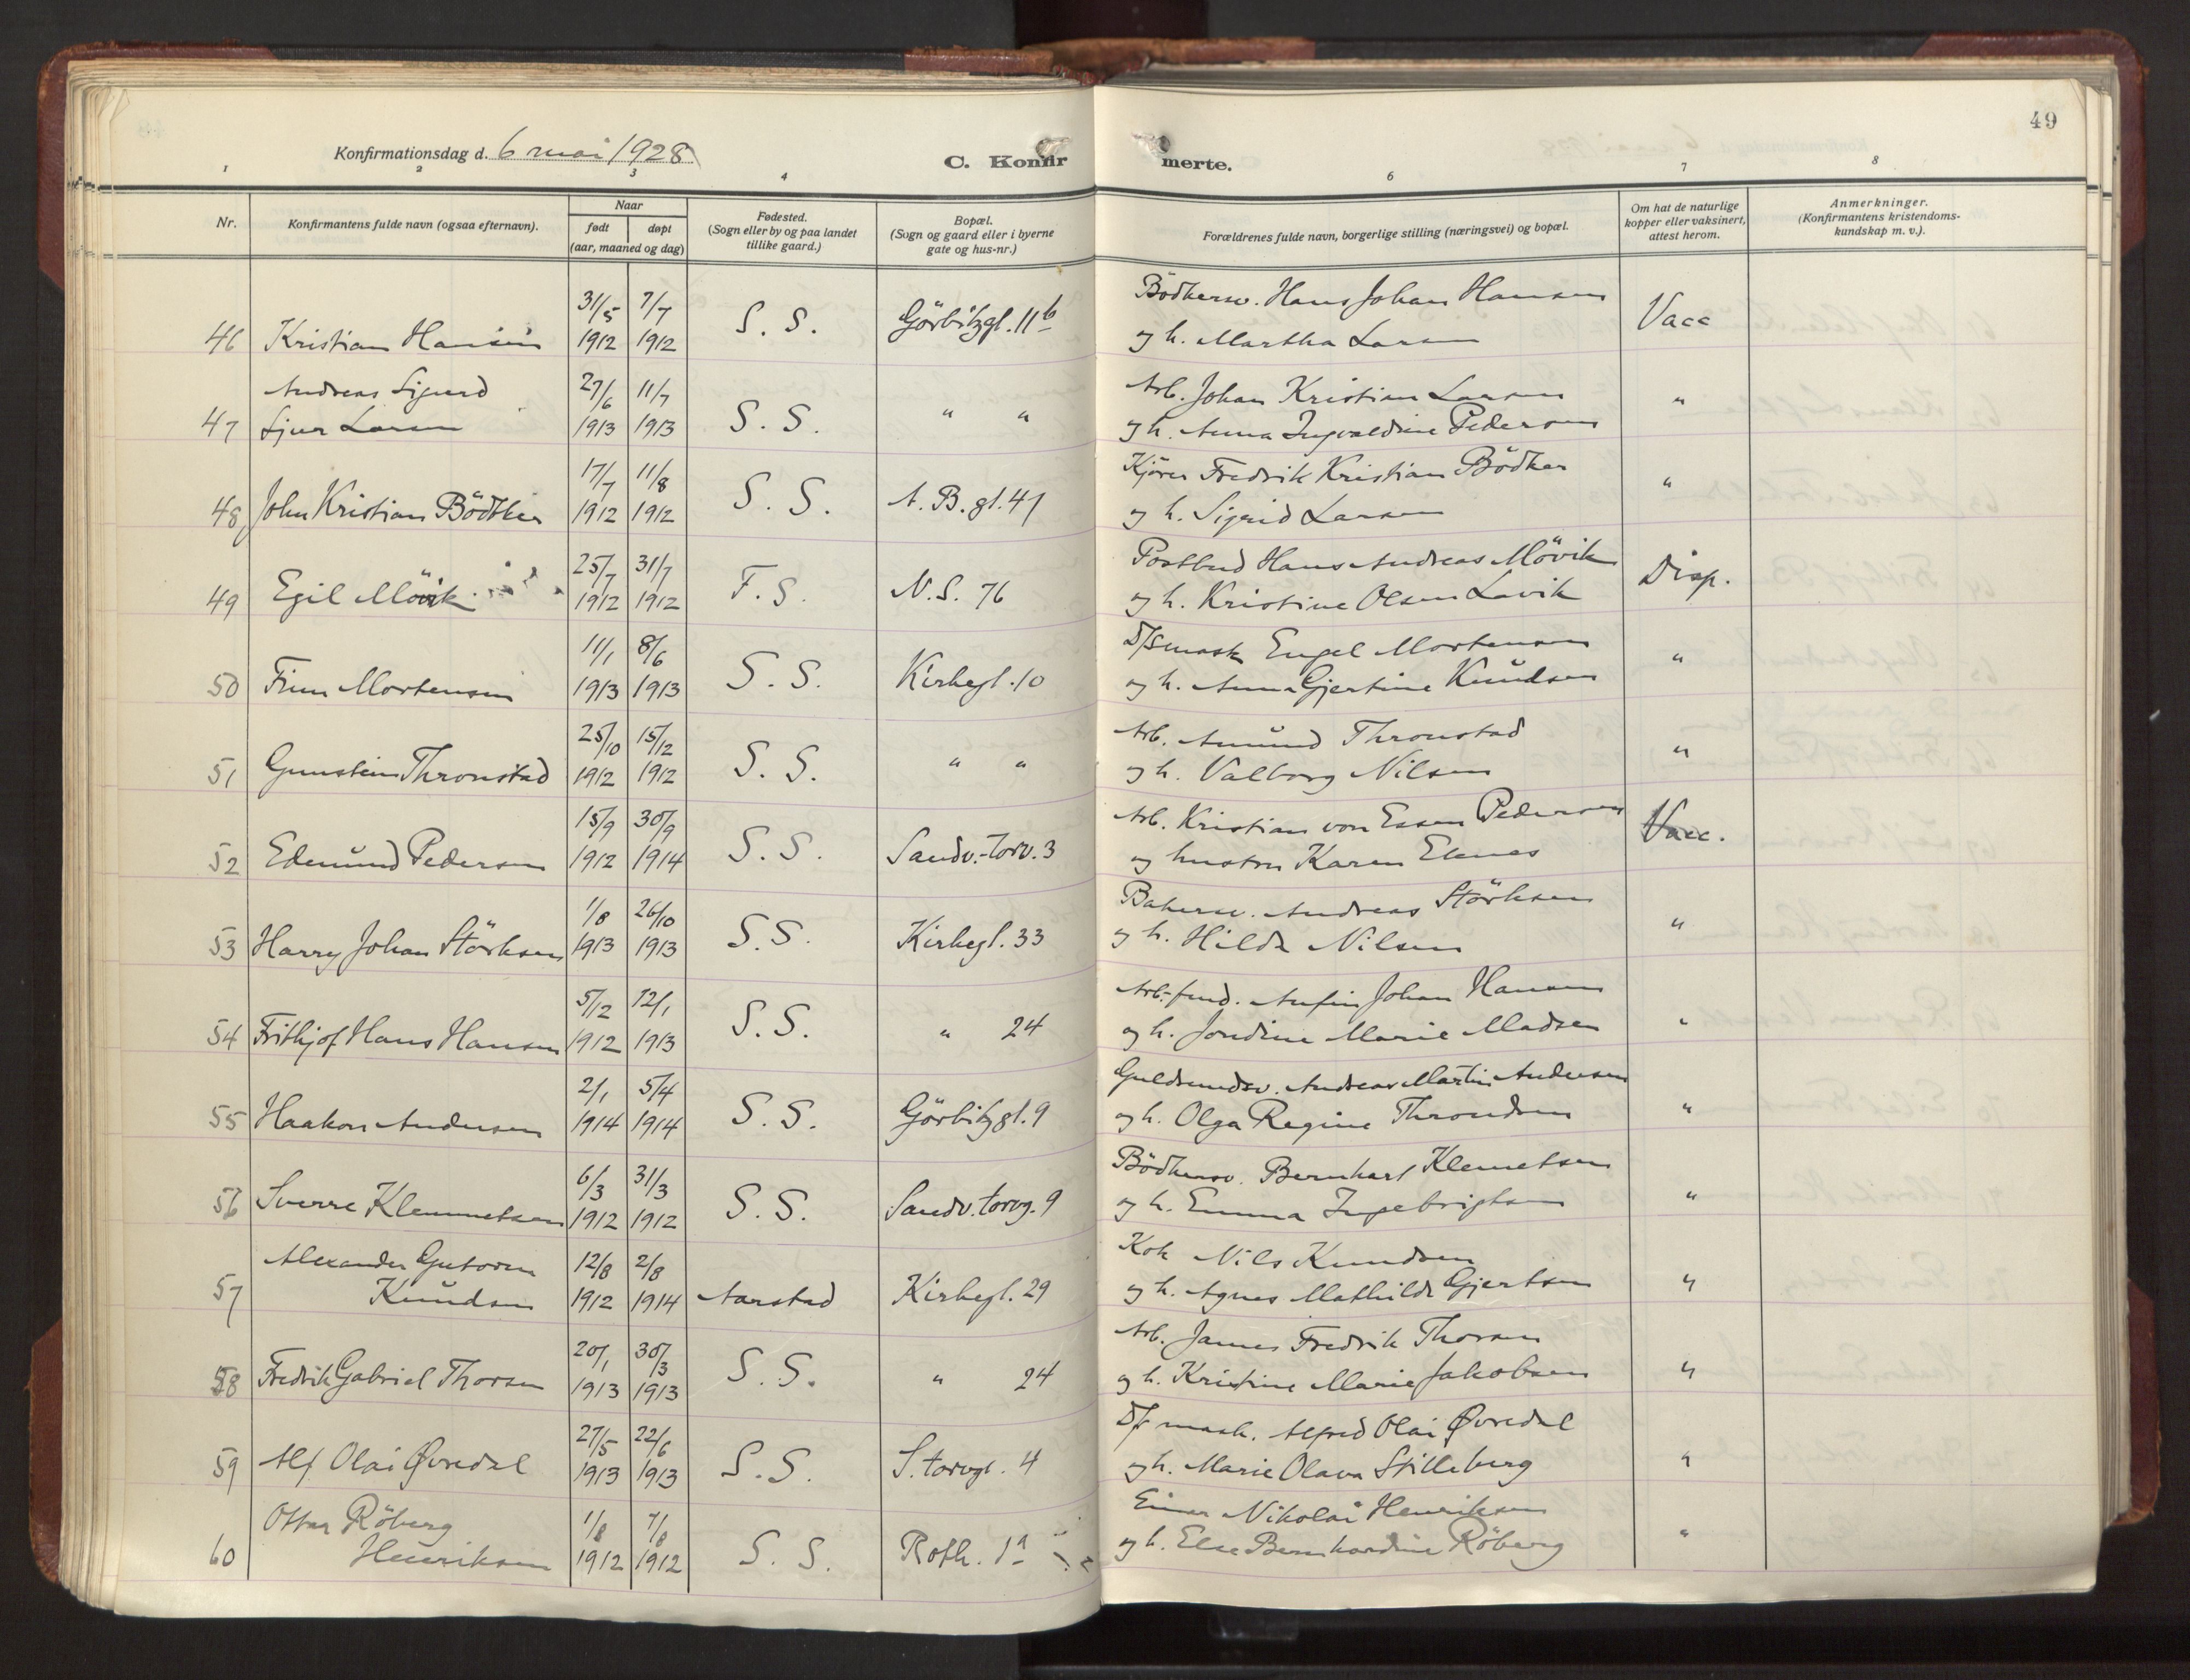 49
Konfirmationsdag d. 6 mai 1928
C. Konfirmerte.
1 2 3 4 6 7 8
Nr.
Konfirmantens fulde navn (ogsaa efternavn).
Naar
født døpt
(aar, maaned og dag)
Fødested.
(Sogn eller by og paa landet
tillike gaard.)
Bopæl.
(Sogn og gaard eller i byerne
gate og hus-nr.)
Forældrenes fulde navn, borgerlige stilling (næringsvei) og bopæl.
Om hat de naturlige
kopper eller vaksinert,
attest herom.
Anmerkninger.
(Konfirmantens kristendoms-
kundskap m. v.).
31/5 7/7 Bödkersv. Hans Johan Hansen
46 Kristian Hansen 1912 1912 S. S. Görbitzgt. 11b og h. Martha Larsen Vacc
Andreas Sigurd 27/6 11/7 Arb. Johan Kristian Larsen
47 Sjur Larsen 1913 1913 S. S. " " og h. Anna Ingvaldine Pedersen "
17/7 11/8 Kjörer Fredrik Kristian Bödker
48 John Kristian Bödtker 1912 1912 S. S. A. B. gt. 41 og h. Sigrid Larsen "
25/7 31/7 Postbud Hans Andreas Mövik
49 Egil Mövik 1912 1912 F. S. N. S. 76 og h. Kristine Olsen Lavik Disp.
11/1 8/6 D/S mask Engel Mortensen
50 Finn Mortensen 1913 1913 S. S. Kirkegt. 10 og h. Anna Gjertine Knudsen "
25/10 15/12 Arb. Amund Thronstad
51 Gunstein Thronstad 1912 1912 S. S. " " og h. Valborg Nilsen "
15/9 30/9 Arb. Kristian von Essen Pedersen
52 Edmund Pedersen 1912 1914 S. S. Sandv.-torv. 3 og hustru Karen Vacc.
1/8 26/10 Bakersv. Andreas Störksen
53 Harry Johan Störksen 1913 1913 S. S. Kirkegt. 33 og h. Hilda Nilsen "
5/12 12/1 Arb.-fmd. Anfin Johan Hansen
54 Frithjof Hans Hansen 1912 1913 S. S. " 24 og h. Jondine Marie Madsen "
2/1 5/4 Guldsmedsv. Andreas Martin Andersen
55 Haakon Andersen 1914 1914 S. S. Görbitzgt. 9 og h. Olga Regine Throndsen "
6/3 31/3 Bödkersv. Bernhart Klemetsen
56 Sverre Klemmetsen 1912 1912 S. S. Sandv. torvg. 9 og h. Emma Ingebrigtsen "
Alexander Gutorm 12/8 2/8 Kok Nils Knudsen
57 Knudsen 1912 1914 Aarstad Kirkegt. 29 og h. Agnes Mathilde Gjertsen "
20/1 30/3 Arb. James Fredrik Thorsen
58 Fredrik Gabriel Thorsen 1913 1913 S. S. " 24 og h. Kristine Marie Jakobsen "
27/5 22/6 D/S mask. Alfred Olai Øvredal
59 Alf Olai Øvredal 1913 1913 S. S. S. torvgt. 4 og h. Marie Olava Stilleberg "
Ottar Röberg 1/8 7/8 Einar Nikolai Henriksen
60 Henriksen 1912 1912 S. S. Roth. 1a og h. Else Bernhardine Röberg "